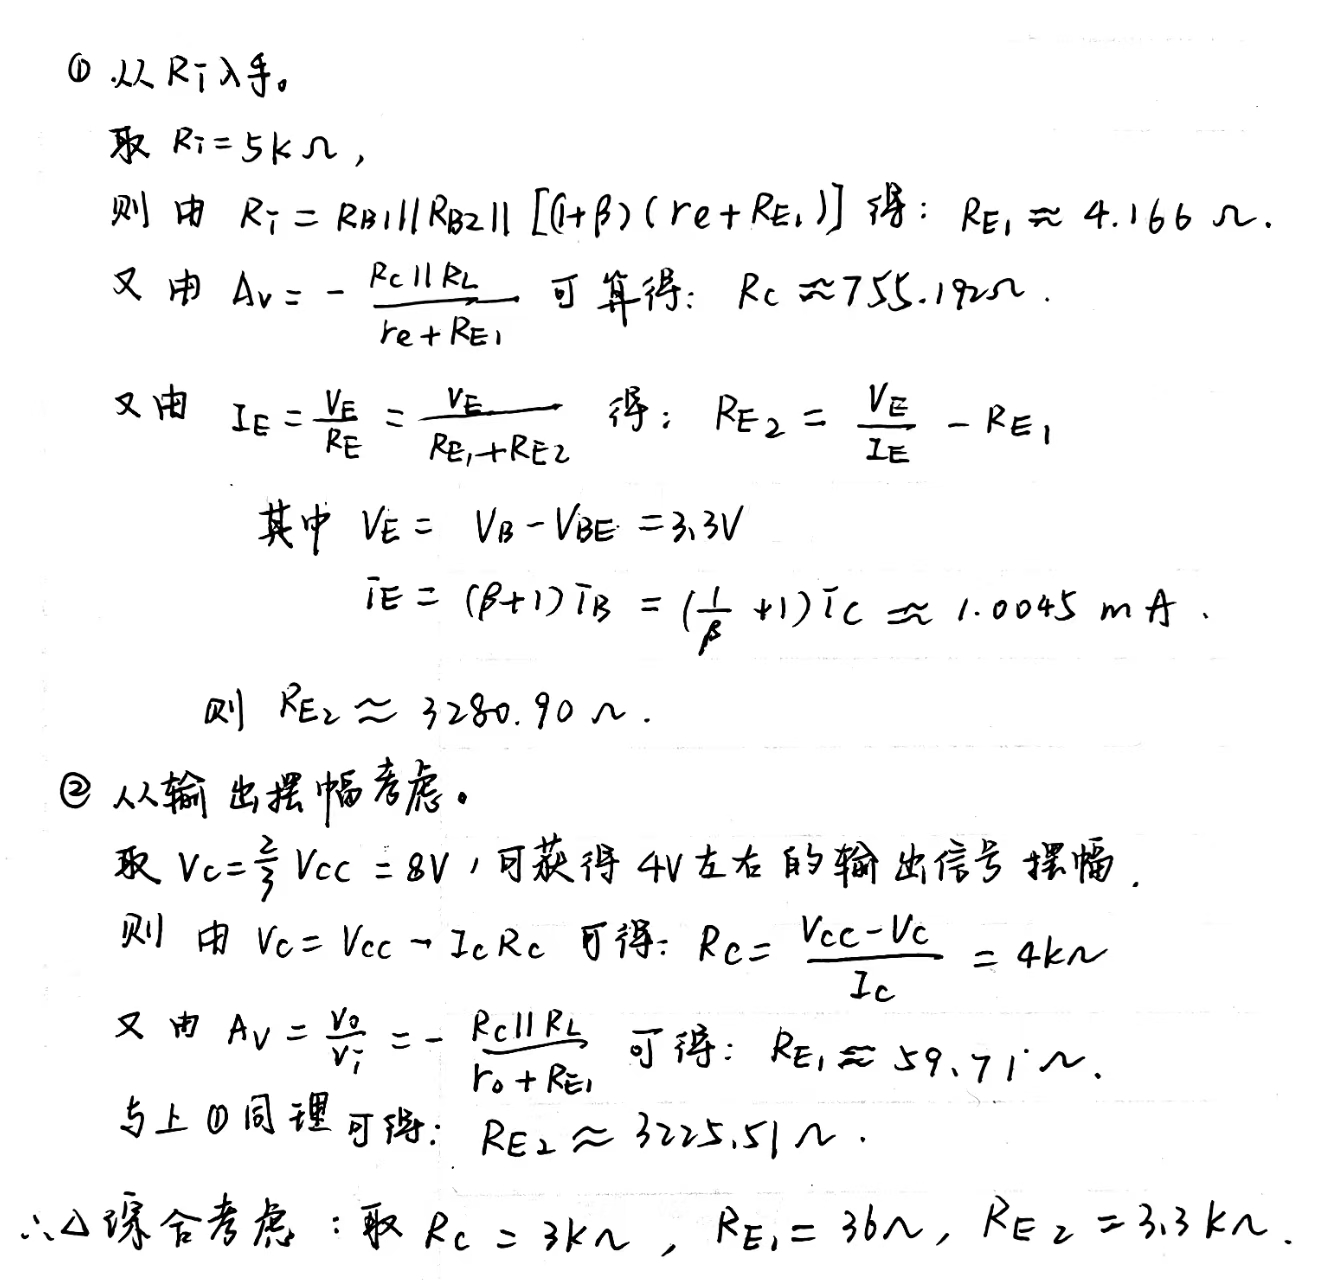 ① 从 Ri 入手。
取 Ri = 5kΩ,
则由 Ri = RB1||RB2||[(1+β)(re+RE1)] 得: RE1 ≈ 4.166 Ω.
又由 Av = - (RC||RL)/(re+RE1) 可算得: RC ≈ 755.192Ω.
又由 IE = VE/RE = VE/(RE1+RE2) 得: RE2 = VE/IE - RE1
其中 VE = VB - VBE = 3.3V
IE = (β+1)IB = (1/β +1)IC ≈ 1.0045 mA.
则 RE2 ≈ 3280.90 Ω.
② 从输出摆幅考虑。
取 VC = 2/3 VCC = 8V, 可获得 4V 左右的输出信号摆幅.
则由 VC = VCC - ICRC 可得: RC = (VCC-VC)/IC = 4kΩ
又由 AV = vo/vi = - (RC||RL)/(ro+RE1) 可得: RE1 ≈ 59.71 Ω.
与上①同理可得: RE2 ≈ 3225.51 Ω.
∴△综合考虑: 取 RC = 3kΩ, RE1 = 36Ω, RE2 = 3.3kΩ.